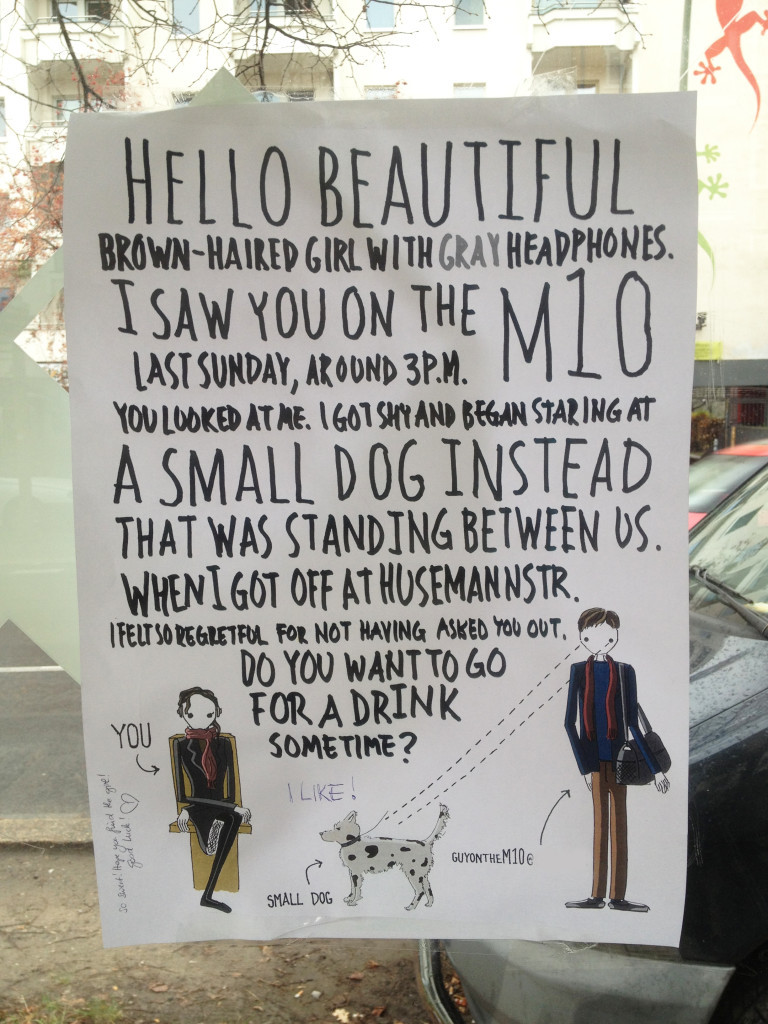 HELLO BEAUTIFUL
BROWN-HAIRED GIRL WITH GRAY HEADPHONES.
I SAW YOU ON THE M10
LAST SUNDAY, AROUND 3P.M.
YOU LOOKED AT ME. I GOT SHY AND BEGAN STARING AT
A SMALL DOG INSTEAD
THAT WAS STANDING BETWEEN US.
WHEN I GOT OFF AT HUSEMANNSTR.
I FELT SO REGRETFUL FOR NOT HAVING ASKED YOU OUT.
DO YOU WANT TO GO
FOR A DRINK
SOMETIME?
YOU
I LIKE!
So sweet! Hope you find the girl!
Good luck! ♡
SMALL DOG
GUYONTHEM10@